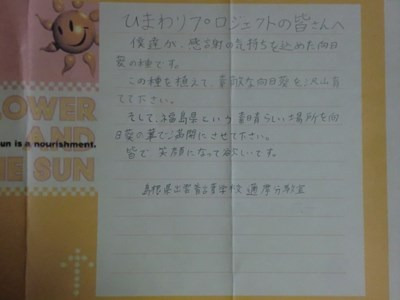 ひまわりプロジェクトの皆さんへ
僕達が、感謝の気持ちを込めた向日
葵の種です。
この種を植えて、素敵な向日葵を沢山育
てて下さい。
そして、福島県という素晴らしい場所を向
日葵の華で満開にさせて下さい。
皆で笑顔になって欲しいです。
島根県出雲養護学校
分教室
LOWER
AND
THE SUN
sun is a nourishment.